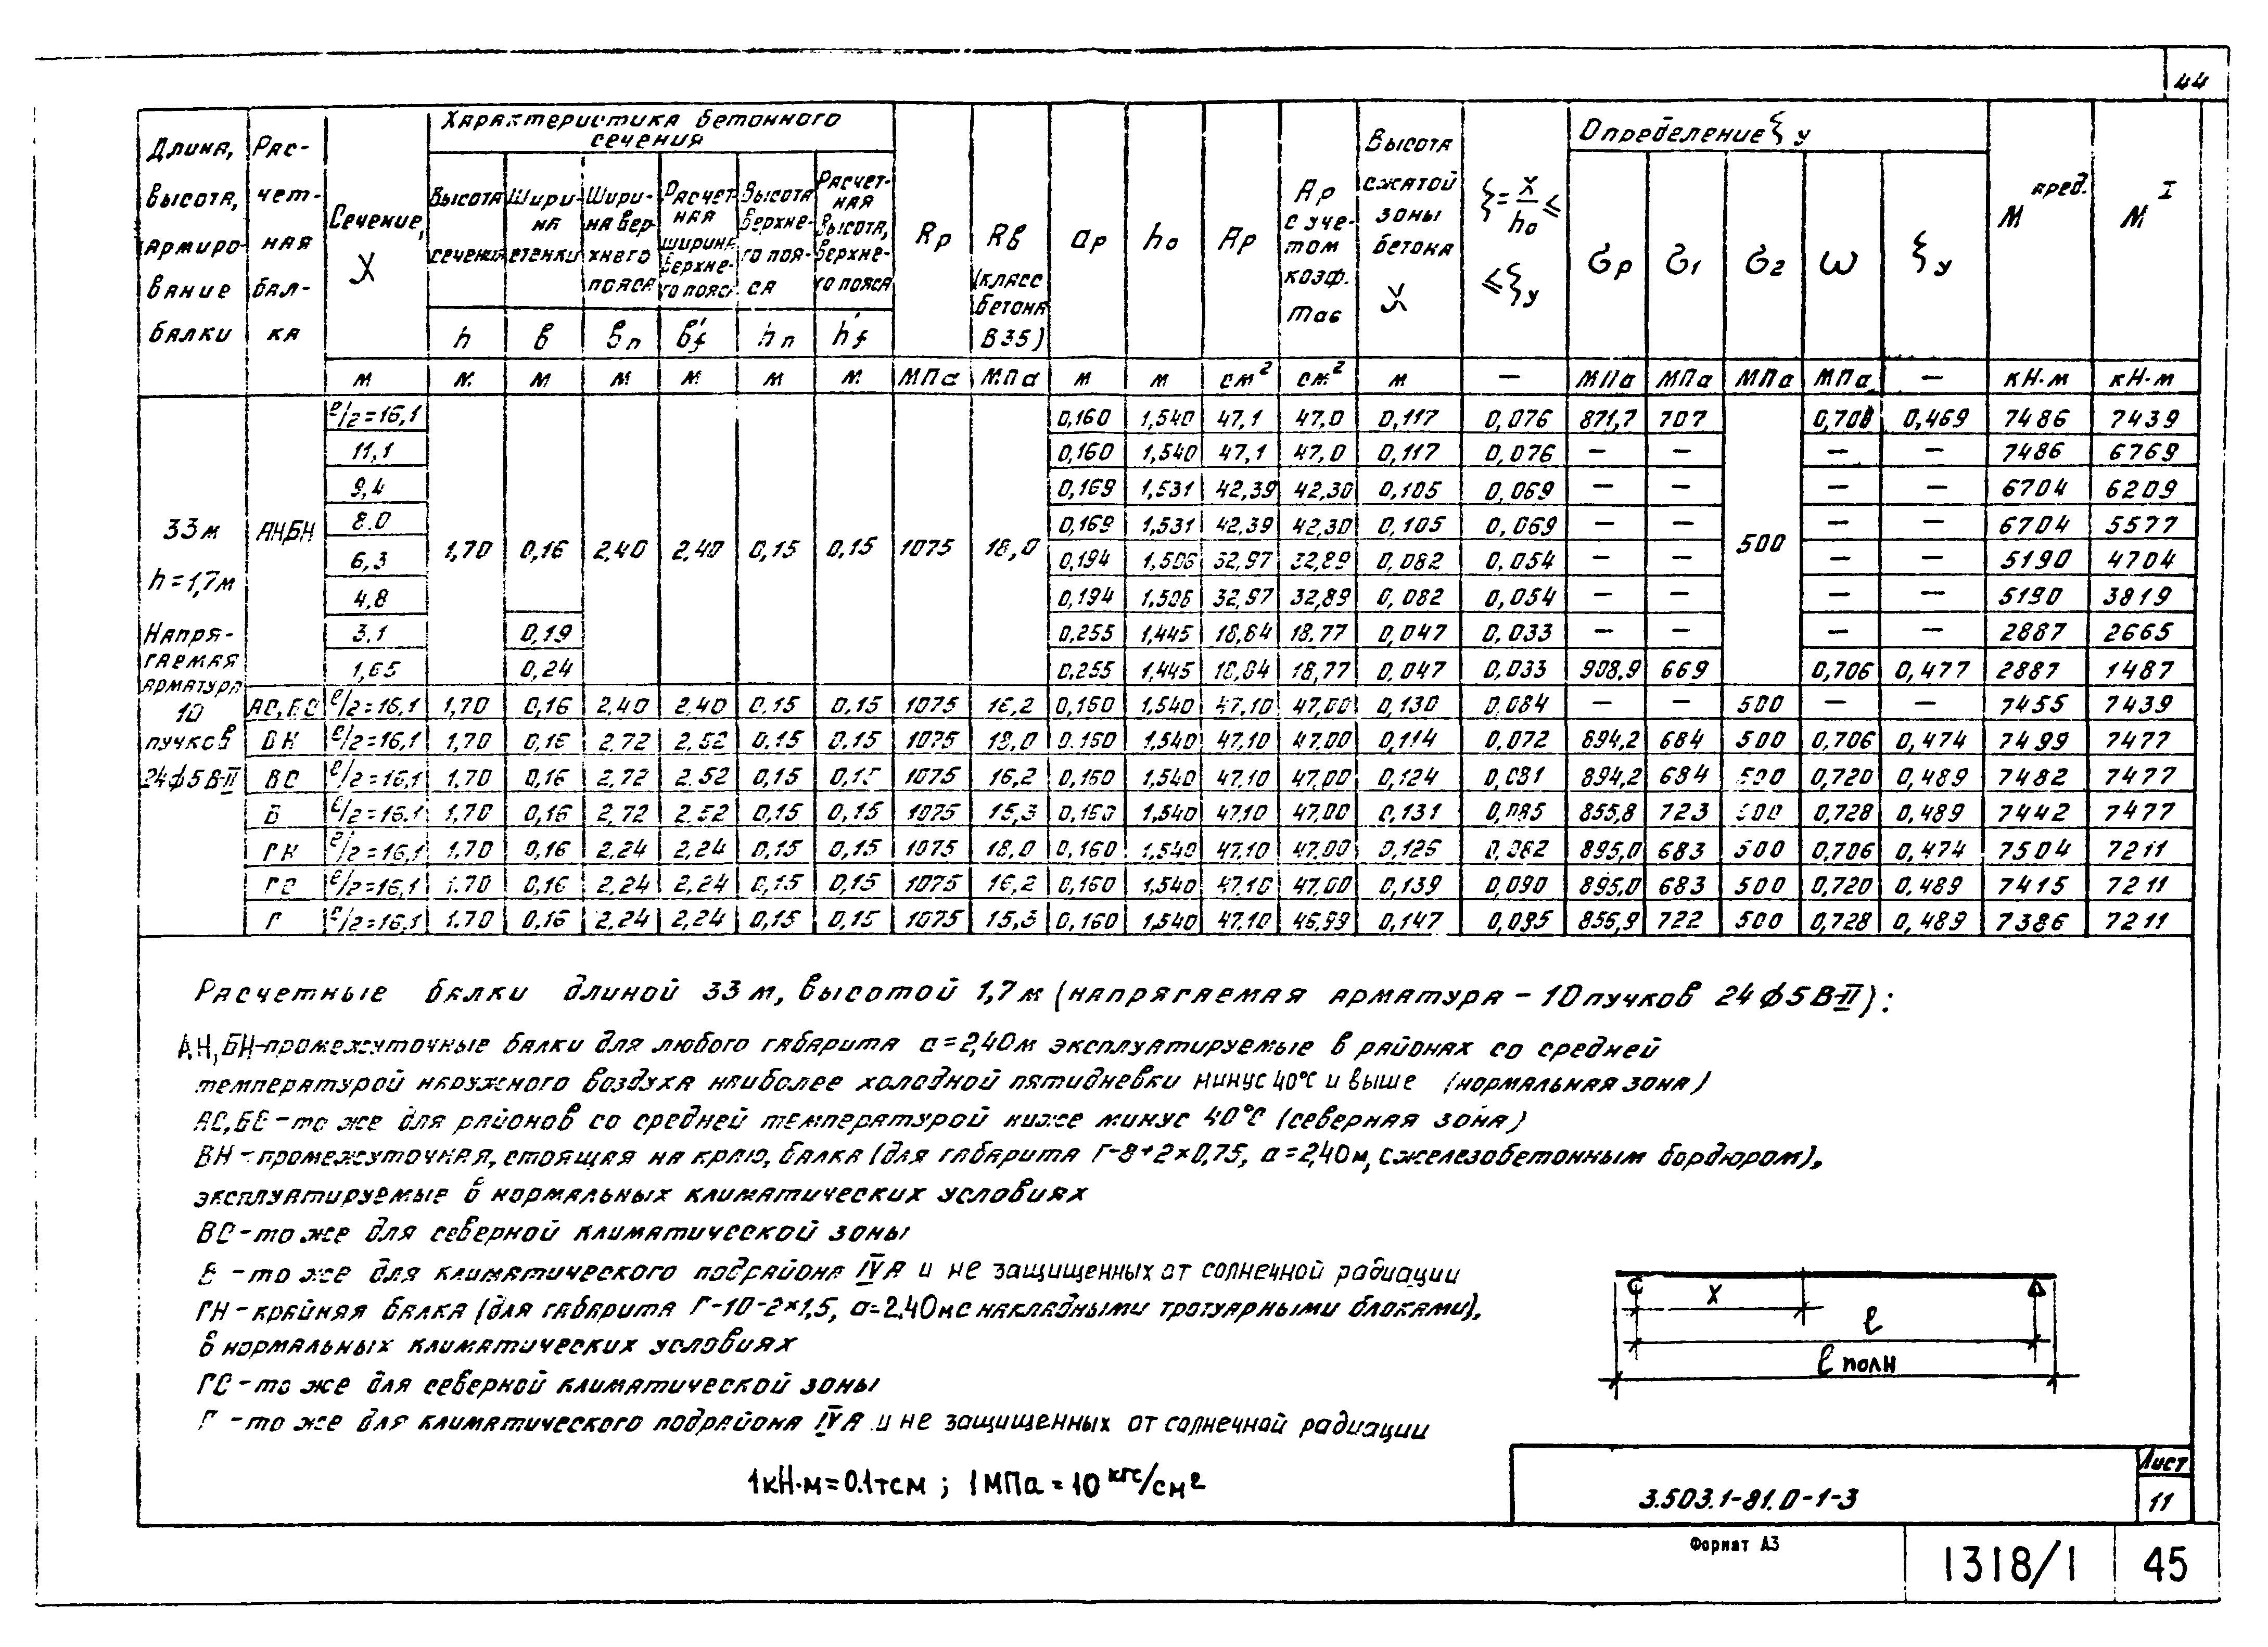 44
Длина, высота, армирование балки
Расчетная балка
Сечение, X
Характеристика бетонного сечения
Высота сечения
Ширина стенки
Ширина верхнего пояса
Расчетная ширина верхнего пояса
Высота верхнего пояса
Расчетная высота, верхнего пояса
h в вп в'f hп h'f
Rр
Rв (класс бетона В35)
aр
hо
Aр
Aр с учетом коэф. mаб
Высота сжатой зоны бетона X
ξ = x/hо ≤ ≤ ξу
Определение ξу
σр σ1 σ2 ω ξу
M пред.
M I
м м м м м м м МПа МПа м м см² см² м — МПа МПа МПа МПа — кН·м кН·м
33 м
h = 1,7 м
Напрягаемая арматура 10 пучков 24ф5В-II
АН,БН 1,70 0,16 2,40 2,40 0,15 0,15 1075 18,0 500
ℓ/2=16,1 0,160 1,540 47,1 47,0 0,117 0,076 871,7 707 0,708 0,469 7486 7439
11,1 0,160 1,540 47,1 47,0 0,117 0,076 — — — — 7486 6769
9,4 0,169 1,531 42,39 42,30 0,105 0,069 — — — — 6704 6209
8.0 0,169 1,531 42,39 42,30 0,105 0,069 — — — — 6704 5577
6,3 0,194 1,506 32,97 32,89 0,082 0,054 — — — — 5190 4704
4,8 0,194 1,506 32,97 32,89 0,082 0,054 — — — — 5190 3819
3.1 0,19 0,255 1,445 18,84 18,77 0,047 0,033 — — — — 2887 2665
1,65 0,24 0,255 1,445 18,84 18,77 0,047 0,033 908,9 669 0,706 0,477 2887 1487
АС,БС ℓ/2=16,1 1,70 0,16 2,40 2,40 0,15 0,15 1075 16,2 0,160 1,540 47,10 47,00 0,130 0,084 — — 500 — — 7455 7439
ВН ℓ/2=16,1 1,70 0,16 2,72 2,52 0,15 0,15 1075 18,0 0,160 1,540 47,10 47,00 0,114 0,072 894,2 684 500 0,706 0,474 7499 7477
ВС ℓ/2=16,1 1,70 0,16 2,72 2.52 0,15 0,15 1075 16,2 0,160 1,540 47,10 47,00 0,124 0,081 894,2 684 500 0,720 0,489 7482 7477
В ℓ/2=16,1 1,70 0,16 2,72 2.52 0,15 0,15 1075 15,3 0,160 1,540 47,10 47,00 0,131 0,085 855,8 723 500 0,728 0,489 7442 7477
ГН ℓ/2=16,1 1,70 0,16 2,24 2,24 0,15 0,15 1075 18,0 0,160 1,540 47,10 47,00 0,126 0,082 895,0 683 500 0,706 0,474 7504 7211
ГС ℓ/2=16,1 1.70 0,16 2,24 2,24 0,15 0,15 1075 16,2 0,160 1,540 47,10 47,00 0,139 0,090 895,0 683 500 0,720 0,489 7415 7211
Г ℓ/2=16,1 1.70 0,16 2,24 2,24 0,15 0,15 1075 15,3 0,160 1,540 47,10 46,99 0,147 0,095 856,9 722 500 0,728 0,489 7386 7211
Расчетные балки длиной 33 м, высотой 1,7 м (напрягаемая арматура – 10 пучков 24ф5В-II):
АН, БН-промежуточные балки для любого габарита а=2,40м эксплуатируемые в районах со средней
температурой наружного воздуха наиболее холодной пятидневки минус 40°С и выше (нормальная зона)
АС,БС – то же для районов со средней температурой ниже минус 40°С (северная зона)
ВН – промежуточная, стоящая на краю, балка (для габарита Г-8+2×0,75, а=2,40м, с железобетонным бордюром),
эксплуатируемые в нормальных климатических условиях
ВС – то же для северной климатической зоны
В – то же для климатического подрайона IVА и не защищенных от солнечной радиации
ГН – крайняя балка (для габарита Г-10-2×1,5, а=2,40м с накладными тротуарными блоками),
в нормальных климатических условиях
ГС – то же для северной климатической зоны
Г – то же для климатического подрайона IVА и не защищенных от солнечной радиации
1кН·м=0.1тсм ; 1МПа = 10 кгс/см²
x
ℓ
ℓ полн
3.503.1-81.0-1-3
Лист
11
Формат А3
1318/1
45